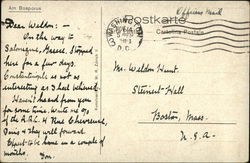 Am Bosporus
Officers Mail
Postkarte
Cartolina Postale
WASHINGTON
D.C.
Dear Weldon:
On the way to
Salonique, Greece. Stopped
here for a few days.
Constantinople is not as
interesting as I had believed.
Haven't heard from you
for some time. Write me c/o
of the A.R.C. 4 Rue Chevreuse,
Paris & they will forward.
Expect to be home in a couple of
months.
Don.
Mr. Weldon Hunt
Steinert Hall
Boston, Mass.
U.S.A.